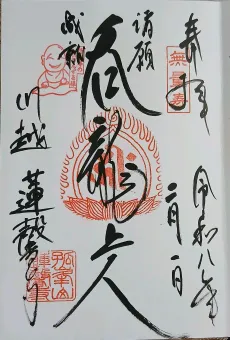 奉拝
無量寿
令和八年
二月一日
諸願
成就
呑龍上人
川越 蓮馨寺
孤峯山
蓮馨寺